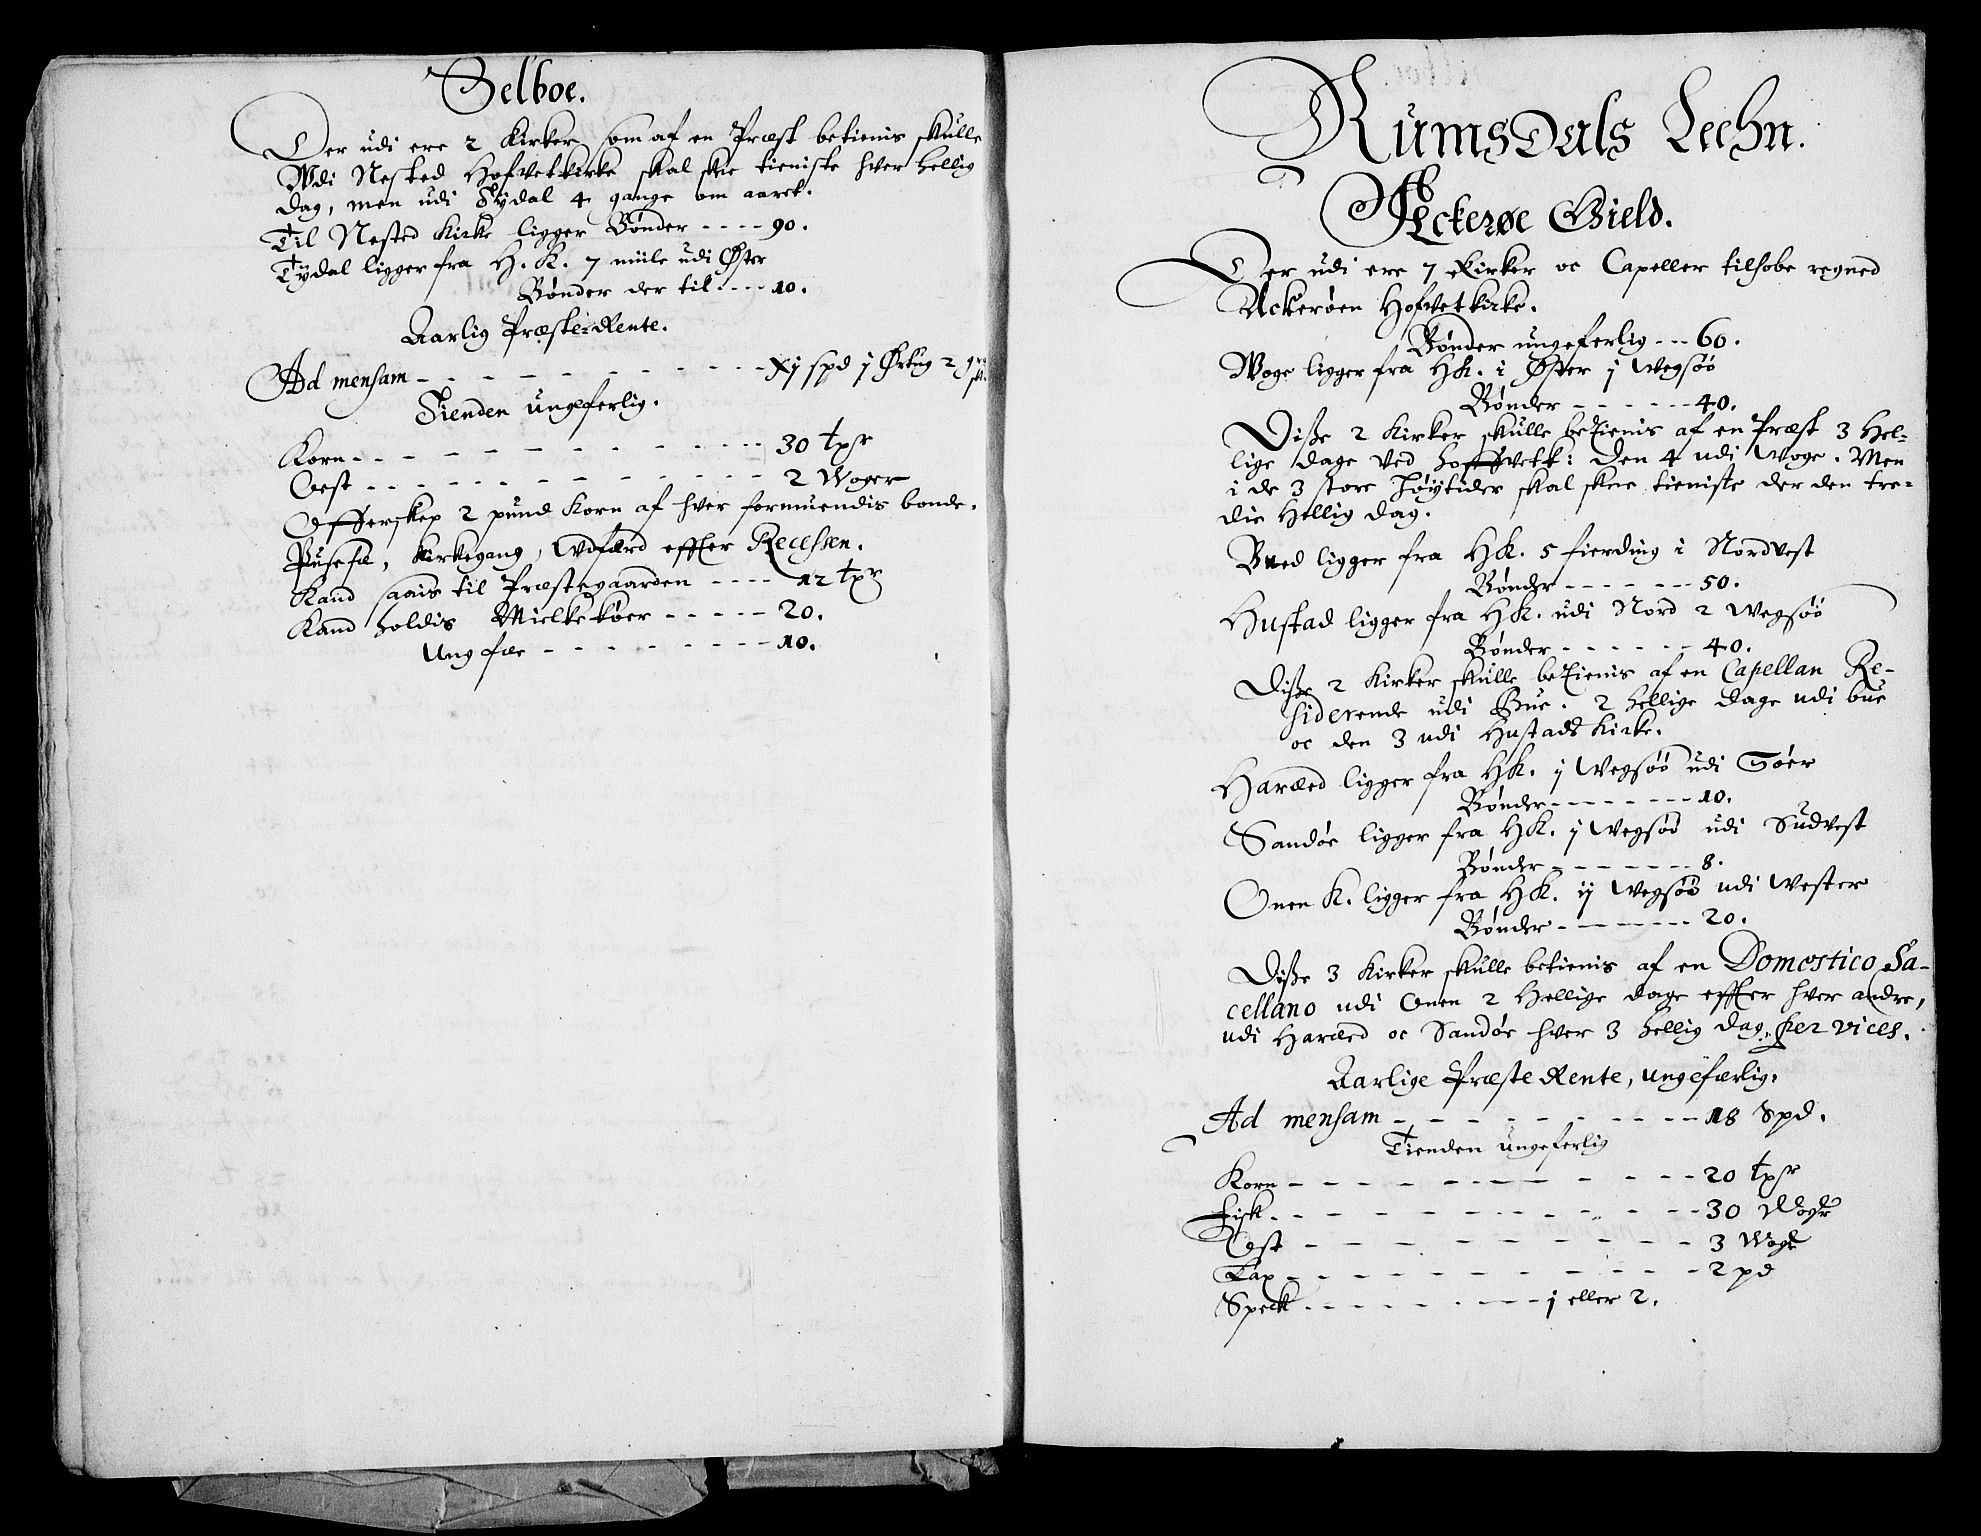 Selboe.
Der udi ere 2 Kirker som af en Præst betienis skulle
Wdi Nested Hofvetkirke skal skee tieniste hver hellig
dag, men udi Tydal 4 gange om aaret.
Til Nested Kirke ligger Bønder ---- 90.
Tydal ligger fra H. K. 7 miile udi Øster
Bønder der til ---- 10.
Aarlig Præste Rente.
Ad mensam - - - - - - - - - Xj spd j Ørtug 2
Tienden ungeferlig.
Korn - - - - - - - - - - 30 tpr
Oest - - - - - - - - - - 2 Woger
Offerskep 2 pund Korn af hver formuendis bonde.
Pusefæ, Kirkegang, Wdfærd effter Recessen.
Kand saais til Præstegaarden ---- 12 tpr
Kand holdis Mielke køer ----- 20.
Ung fæe - - - - - - - - 10.
Rumsdals Leehn.
Ackerøe Gield.
Der udi ere 7 Kirker oc Capeller tilhobe regned
Ackerøen Hofvetkirke.
Bønder ungeferlig --- 60.
Woge ligger fra HK. i Øster j Wegsøø
Bønder - - - - - - 40.
Disse 2 Kirker skulle betienis af en Præst 3 Hel-
lige dage ved hoffvetk: den 4 udi Woge. Men
i de 3 store Høytider skal skee tieniste der den tre-
die Hellig dag.
Bued ligger fra HK. 5 fierding i Nordvest
Bønder - - - - - - 50.
Hustad ligger fra HK. udi Nord 2 Wegsøø
Bønder - - - - - - 40.
Disse 2 Kirker skulle betienis af en Capellan Re-
siderende udi Bue. 2 hellige dage udi bue
oc den 3 udi Hustads Kirke.
Haræed ligger fra HK. j Wegsøø udi Søer
Bønder - - - - - - - 10.
Sandøe ligger fra HK. j Wegsøø udi Sudvest
Bønder - - - - - - - 8.
Onen K. ligger fra HK. ij Wegsøø udi Wester
Bønder - - - - - - 20.
Disse 3 Kirker skulle betienis af en Domestico Sa-
cellano udi Onen 2 Hellige dage effter hver andre,
udi Haræed oc Sandøe hver 3 hellig dag, per vices.
Aarlige Præste Rente, ungefærlig.
Ad mensam - - - - - - - - - 18 Spd.
Tienden ungeferlig
Korn - - - - - - - - - - 20 tpr
Fisk - - - - - - - - - - 30 Woger
Oest - - - - - - - - - - 3 Woger
Lax - - - - - - - - - - 2 pd
Speck - - - - - - - - j eller 2.